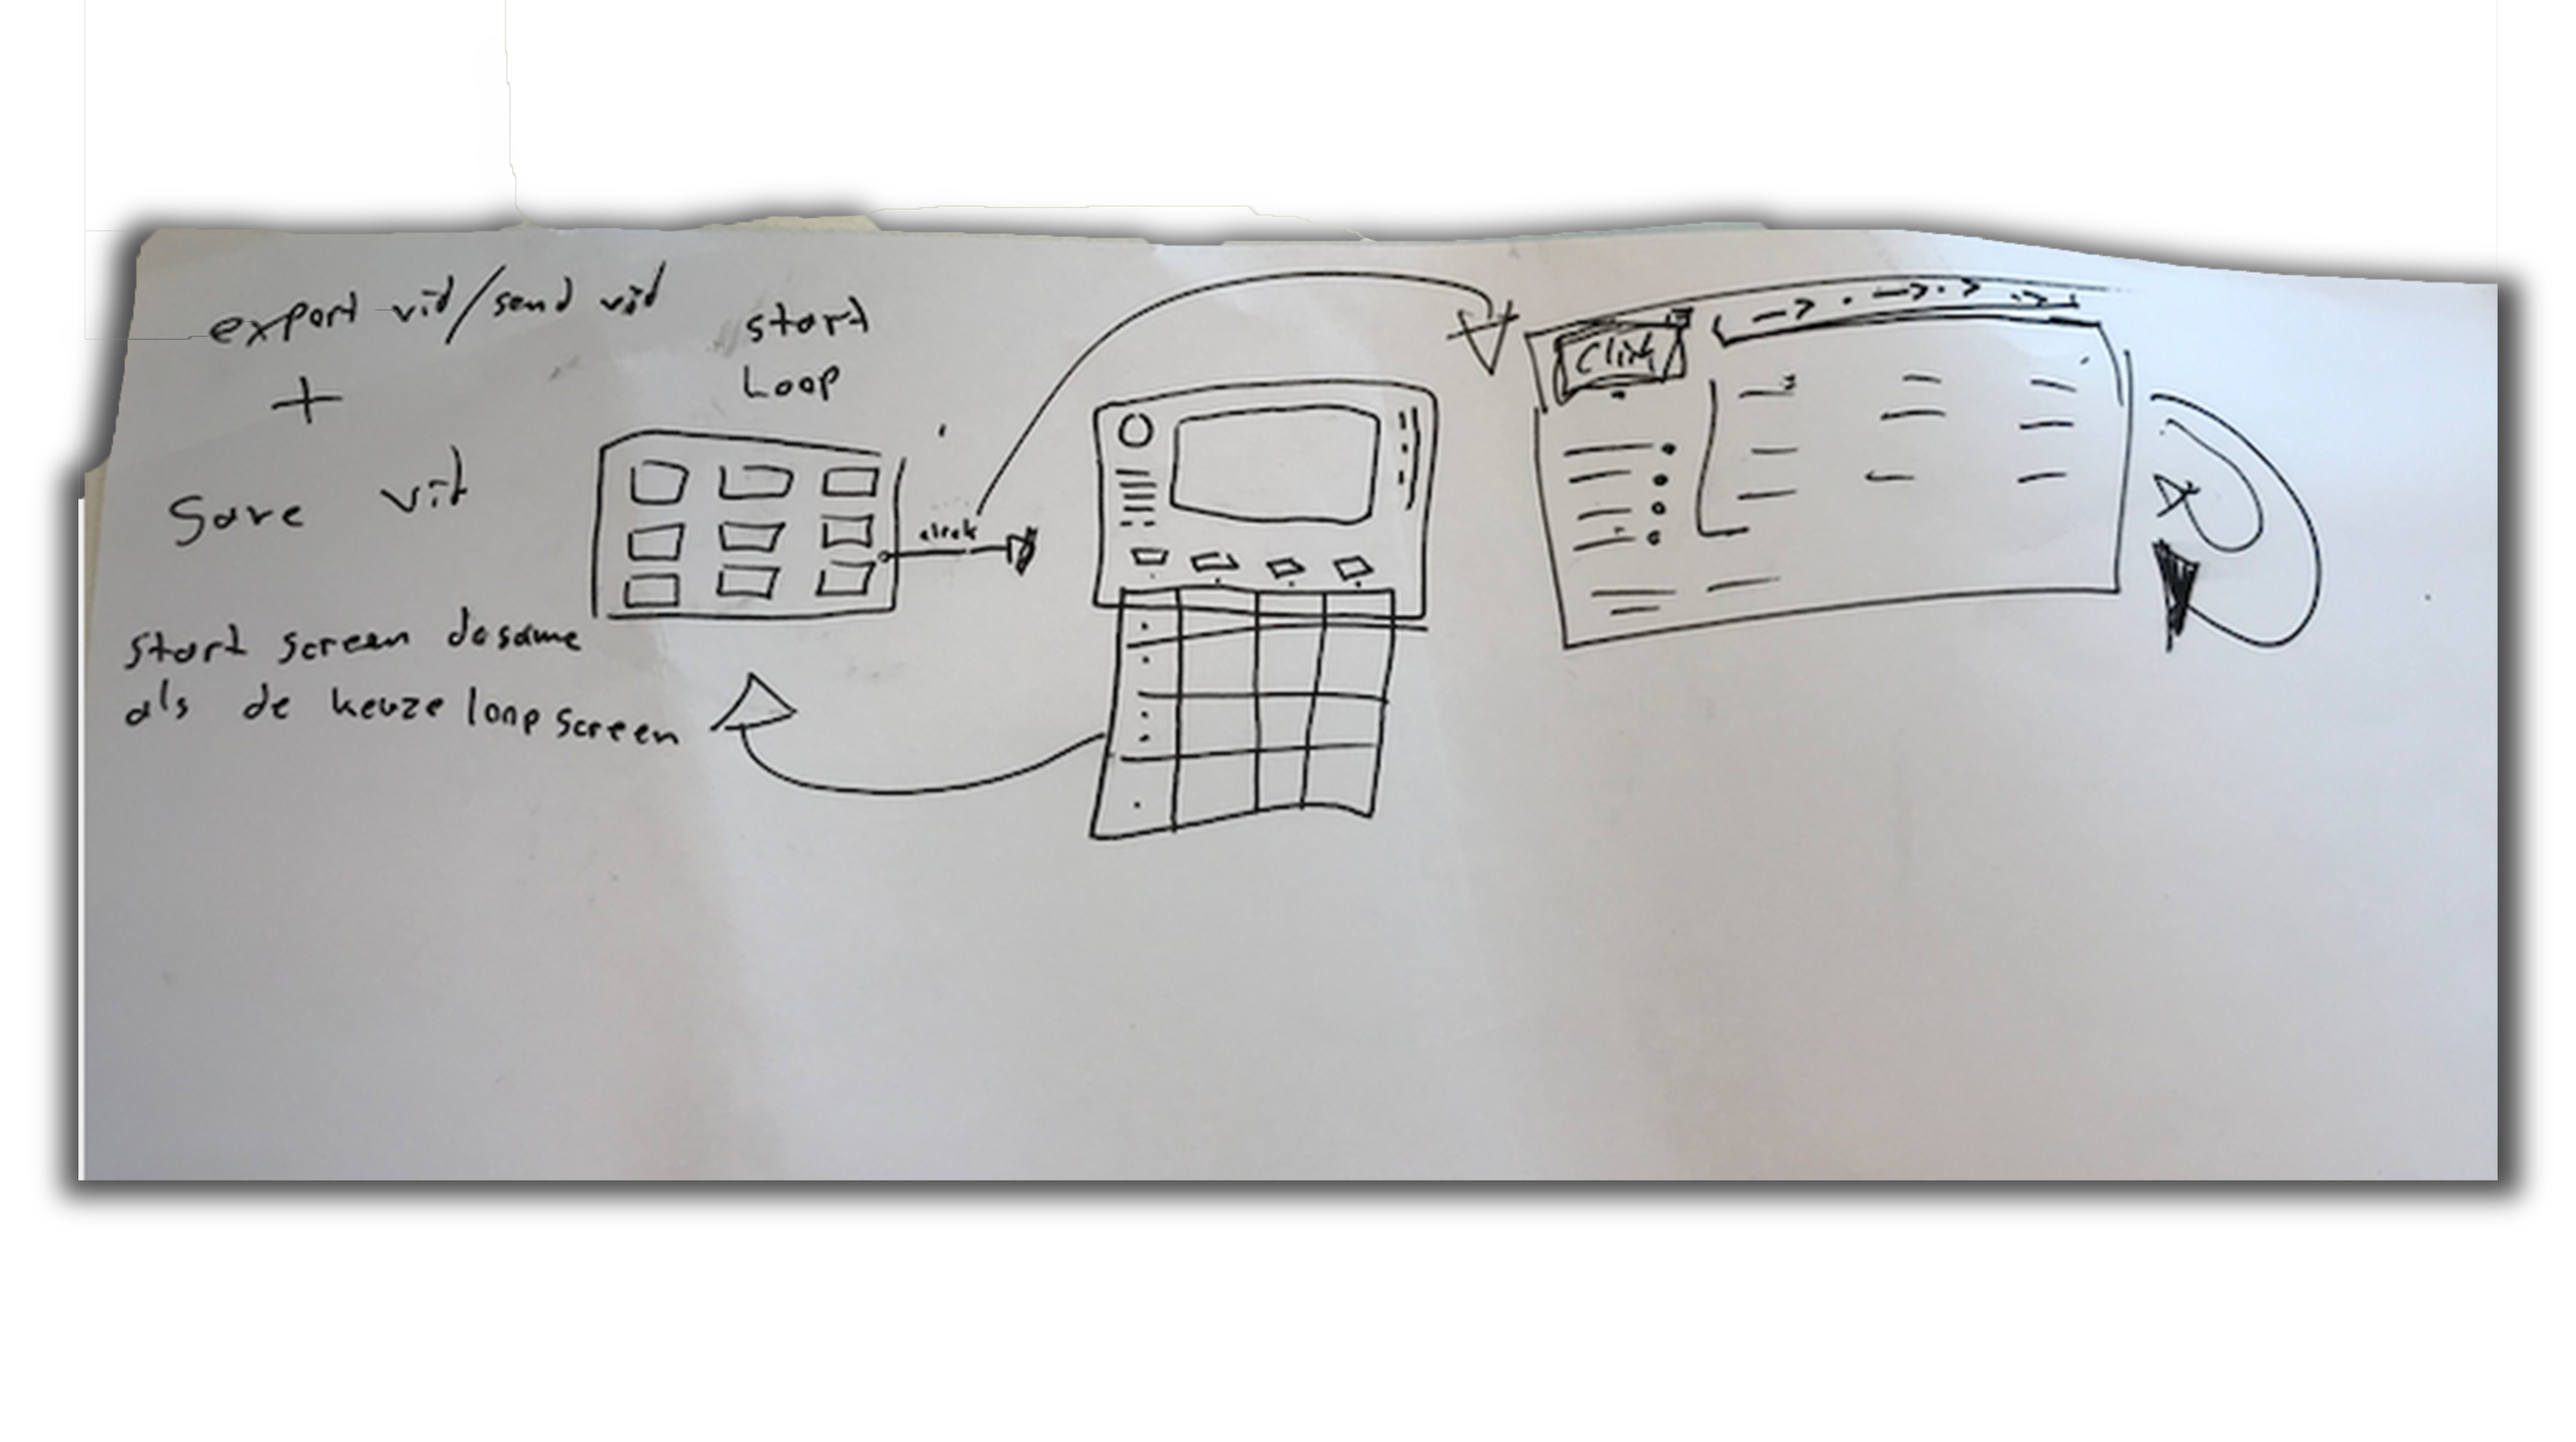 export vid/send vid
+
Save vid
start
Loop
start screen desame
als de keuze loop screen
Click